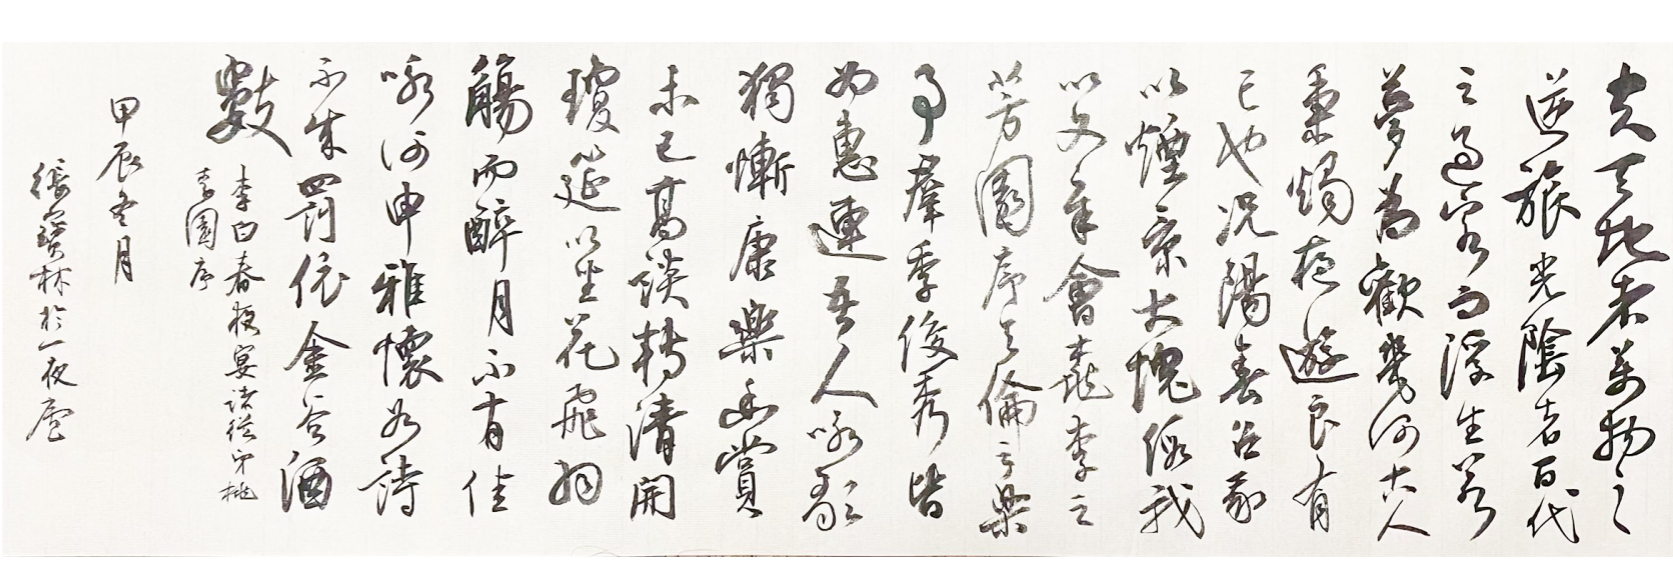 夫天地者萬物之
逆旅光陰者百代
之過客而浮生若
夢為歡幾何古人
秉燭夜遊良有
已也况陽春召我
以煙景大塊假我
以文章會桃李之
芳園序天倫之樂
事羣季俊秀皆
為惠連吾人咏歌
獨慚康樂幽賞
未已高談轉清開
瓊筵以坐花飛羽
觴而醉月不有佳
咏何申雅懷如詩
不成罰依金谷酒
數
李白春夜宴諸從弟桃
李園序
甲辰冬月
寶林於一夜廬